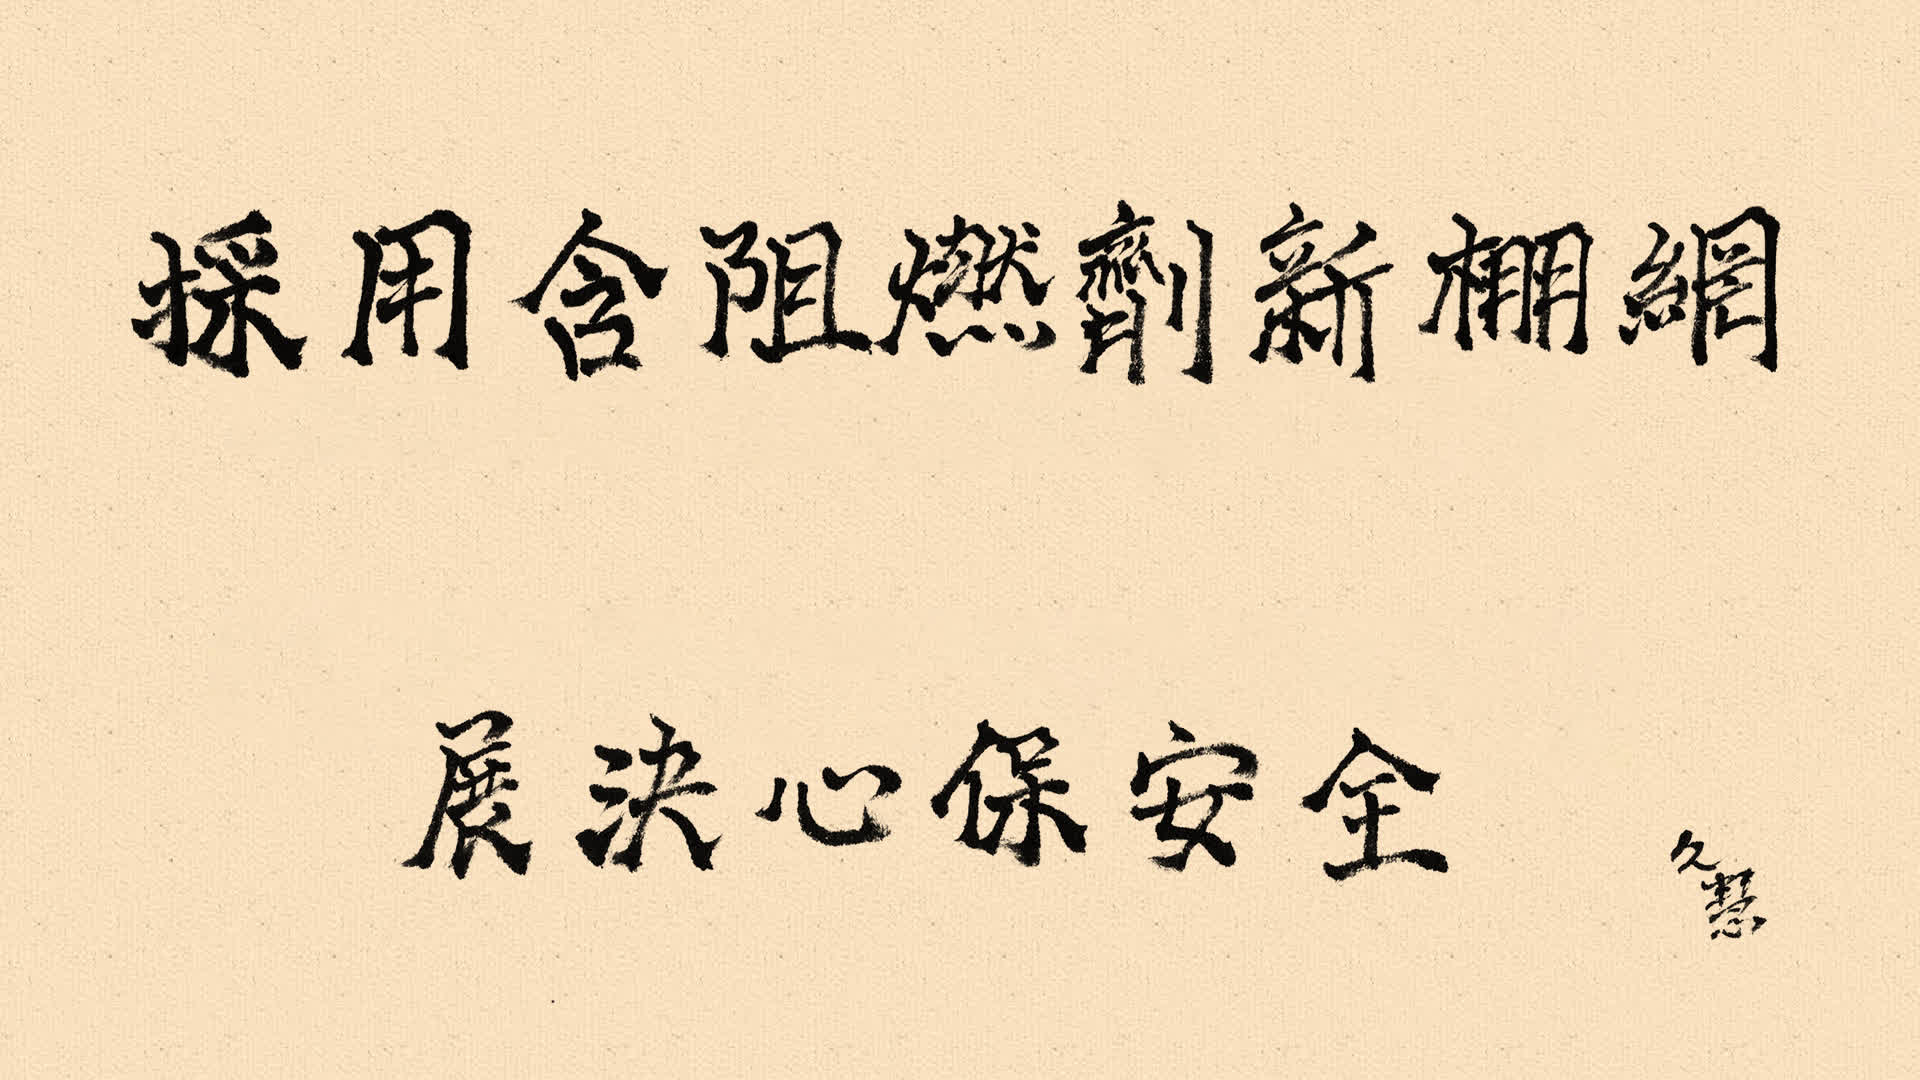 採用含阻燃劑新棚網
展決心保安全
久慧